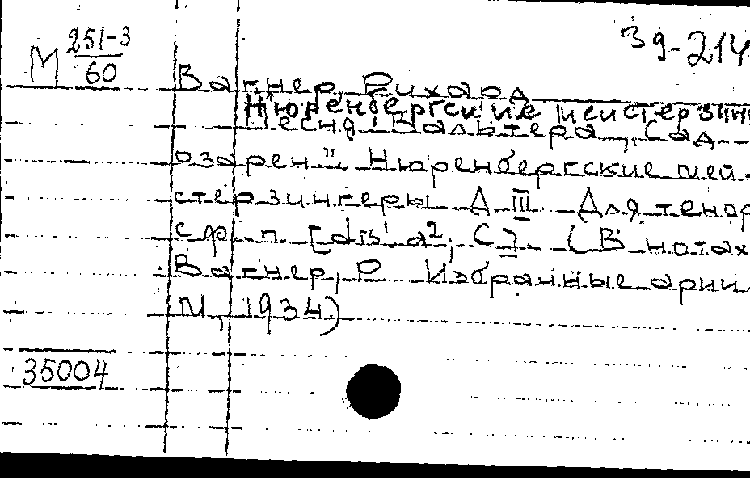 39-214
М 251-3
60
Вагнер, Рихард
Нюренбергские мейстерзин
Песня Вальтера „Сад
озарен“. Нюренбергские мей-
стерзингеры Д. III. Для тенор
с ф-п [dis¹ a², C]. (В нотах
Вагнер, Р. Избранные арии
М, 1934)
35004